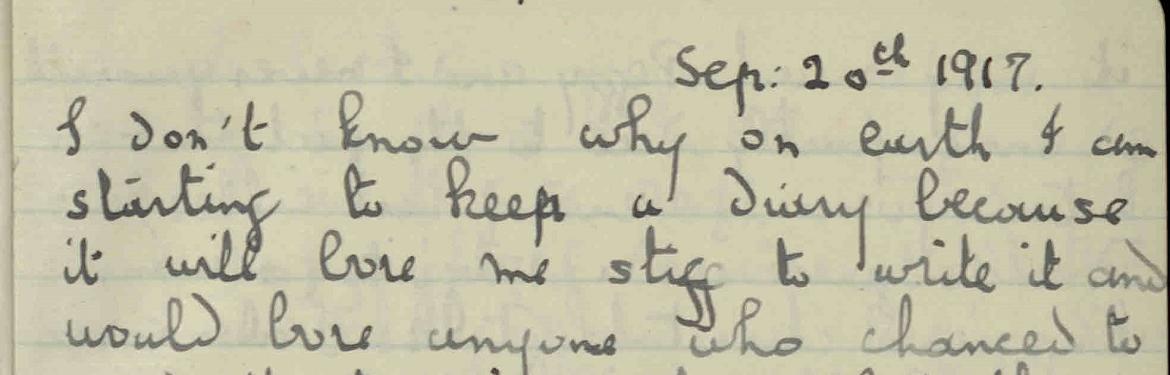 Sep: 20th 1917.
I don't know why on earth I am
starting to keep a diary because
it will bore me stiff to write it and
would bore anyone who chanced to